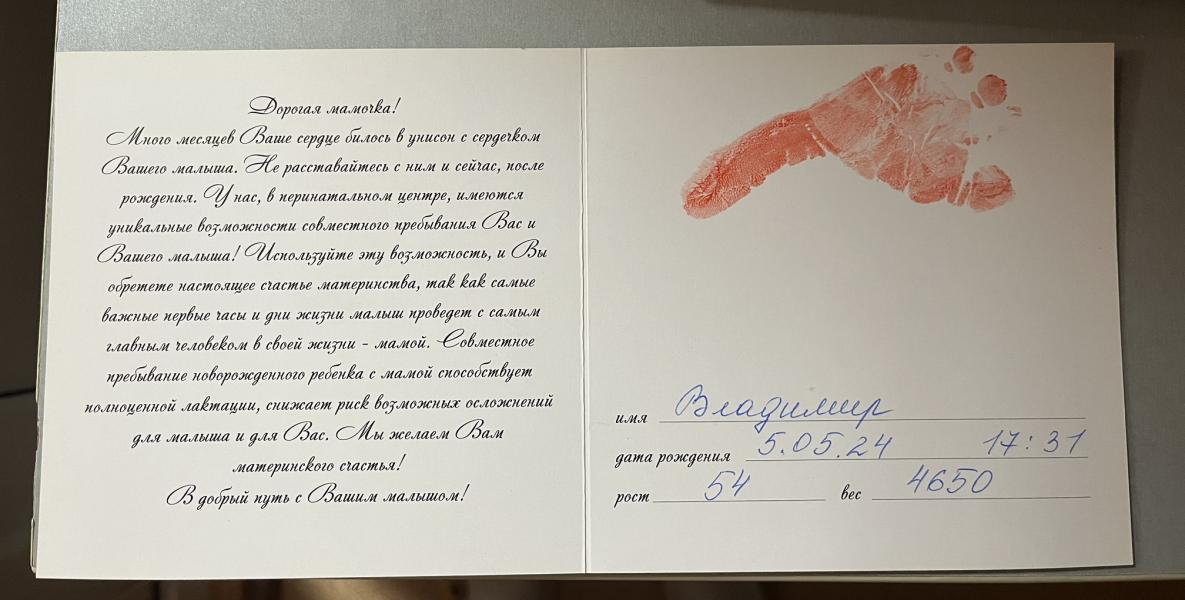 Дорогая мамочка!
Много месяцев Ваше сердце билось в унисон с сердечком
Вашего малыша. Не расставайтесь с ним и сейчас, после
рождения. У нас, в перинатальном центре, имеются
уникальные возможности совместного пребывания Вас и
Вашего малыша! Используйте эту возможность, и Вы
обретете настоящее счастье материнства, так как самые
важные первые часы и дни жизни малыш проведет с самым
главным человеком в своей жизни - мамой. Совместное
пребывание новорожденного ребенка с мамой способствует
полноценной лактации, снижает риск возможных осложнений
для малыша и для Вас. Мы желаем Вам
материнского счастья!
В добрый путь с Вашим малышом!
имя Владимир
дата рождения 5.05.24 17:31
рост 54 вес 4650